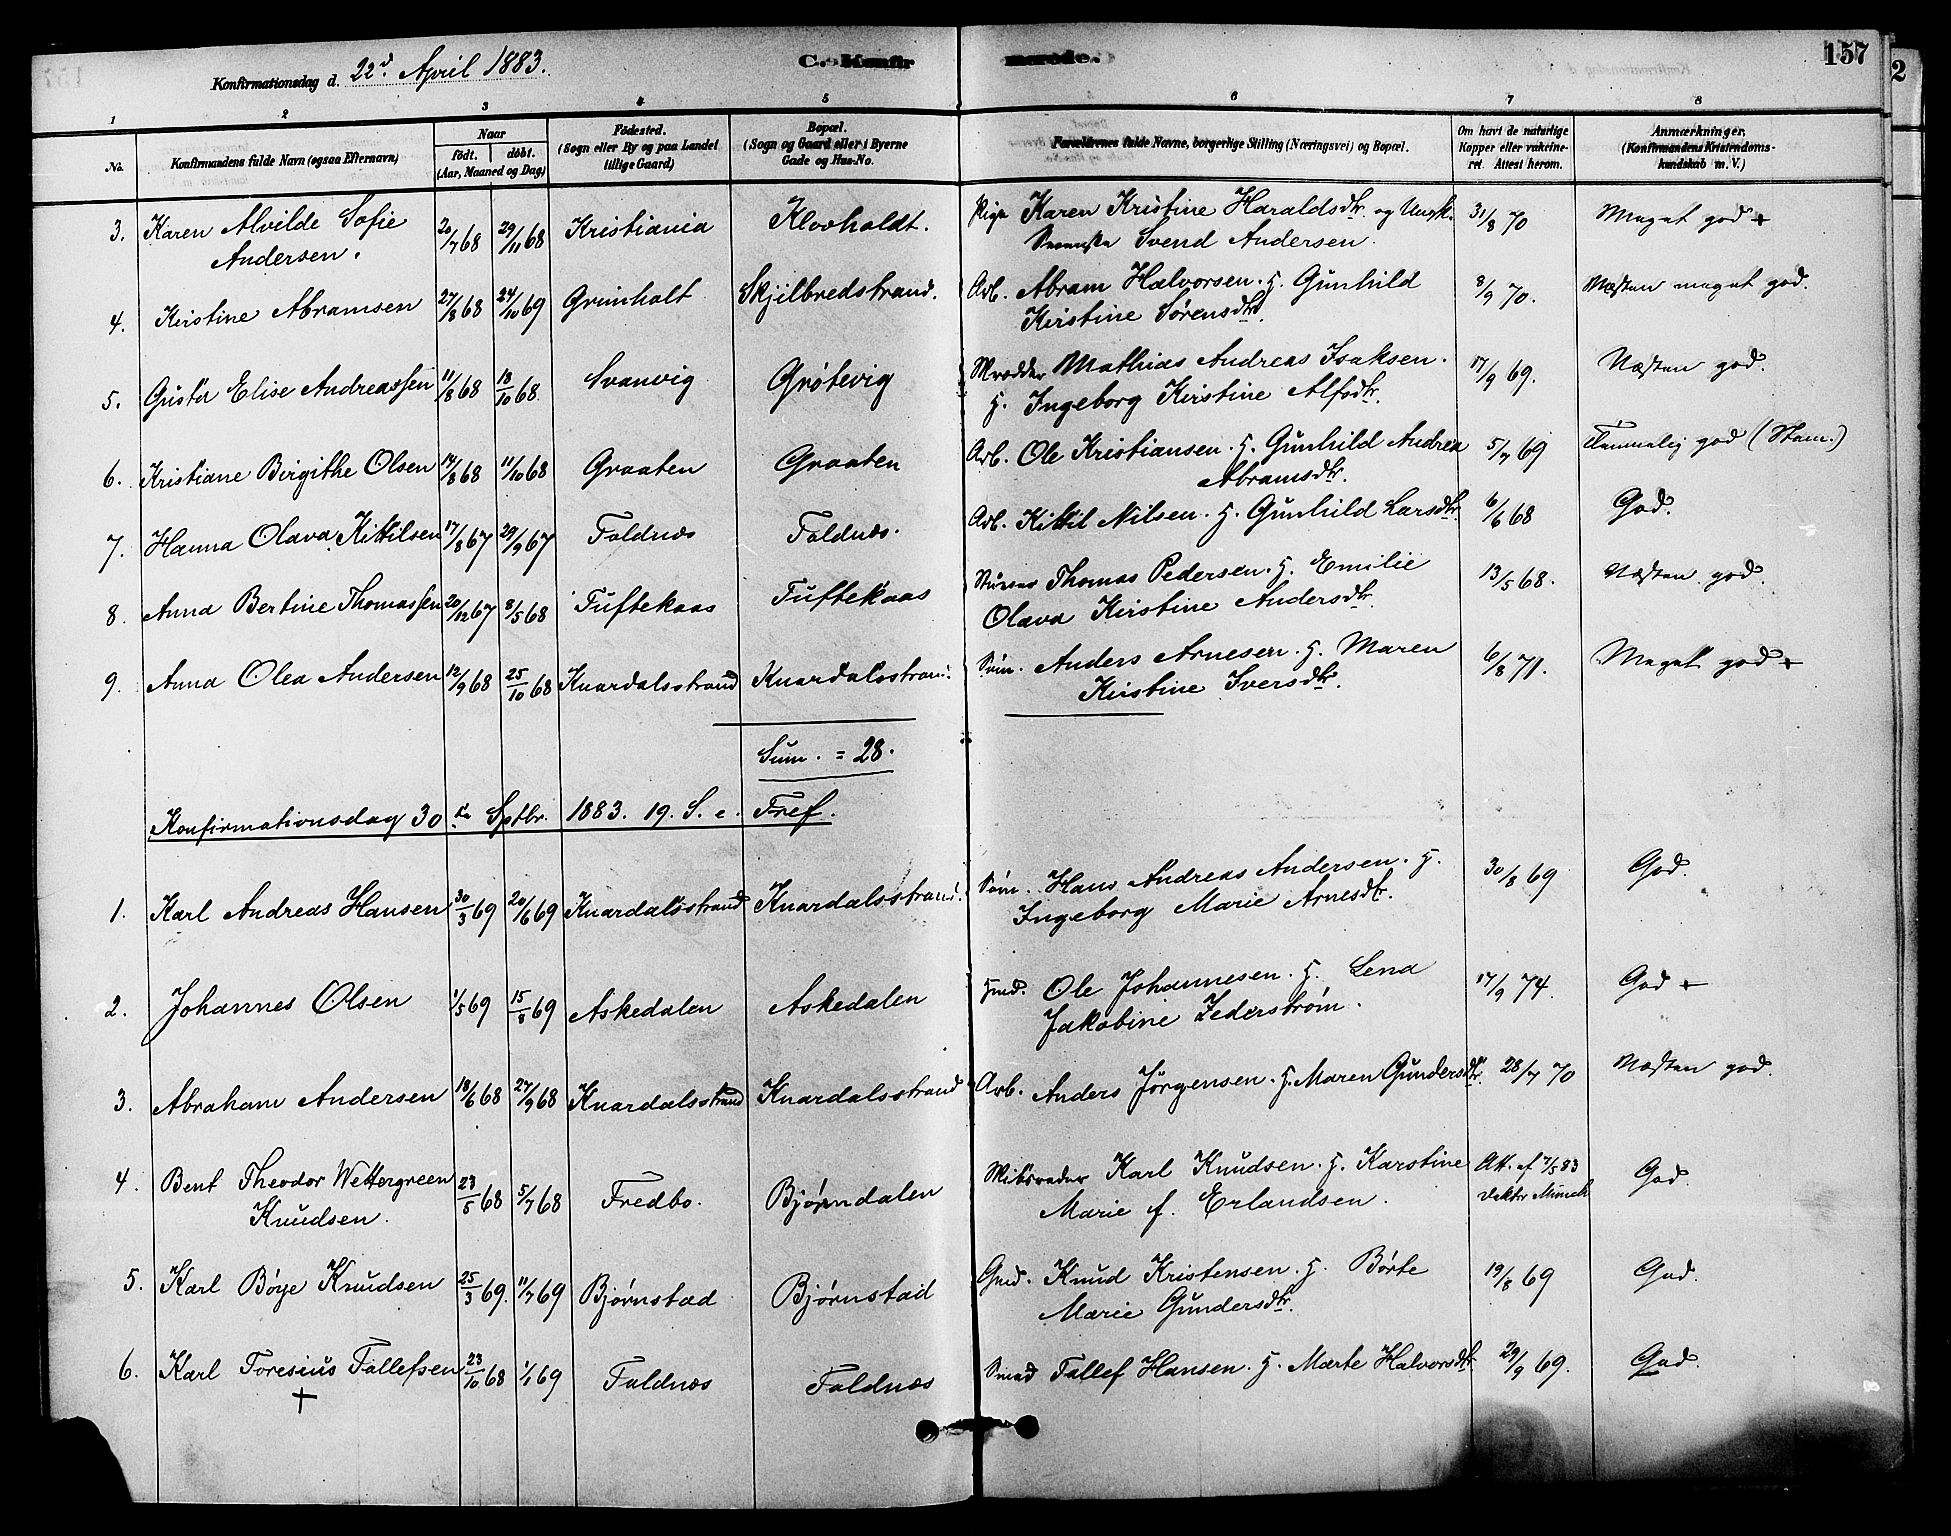 Konfirmationsdag d. 22d April 1883.
C. Konfirmerede.
157
2
1 2 3 4 5 6 7 8
No.
Konfirmandens fulde Navn (ogsaa Efternavn)
Naar
født. døbt.
(Aar, Maaned og Dag)
Fødested.
(Sogn eller By og paa Landet
tillige Gaard)
Bopæl.
(Sogn og Gaard eller i Byerne
Gade og Hus-No.
Forældrenes fulde Navne, borgerlige Stilling (Næringsvei) og Bopæl.
Om havt de naturlige
Kopper eller vakcine-
ret. Attest herom.
Anmærkninger,
(Konfirmandens Kristendoms-
kundskab m. V.)
3. Karen Alvilde Sofie 20/7 68 29/11 68 Kristiania Klovholdt. Pige Karen Kristine Haraldsdtr. og Ungk. 31/8 70 Meget god +
Andersen. Svenske Svend Andersen.
4. Kirstine Abramsen 27/8 68 24/10 69 Grimholt Skjilbredstrand. Arb. Abram Halvorsen. H. Gunhild 8/9 70. Næsten meget god.
Kirstine Sørensdtr.
5. Gusta Elise Andreassen 11/8 68 18/10 68. Svanvig Grøtevig Mathias Andreas Isaksen. 17/9 69. Næsten god.
H. Ingeborg Kirstine Alfsdtr.
6. Kristiane Birgithe Olsen 14/8 68 11/10 68 Graaten Graaten Arb. Ole Kristiansen. H. Gunhild Andrea 5/7 69 Temmelig god (Stam.)
Abramsdtr.
7. Hanna Olava Kittilsen 17/8 67 29/9 67 Foldnæs Foldnæs. Arb. Kittil Nilsen. H. Gunhild Larsdtr. 6/6 68 God.
8. Anna Bertine Thomassen 20/12 67 8/5 68 Tuftekaas Tuftekaas Thomas Pedersen. H. Emilie 13/5 68. Næsten god.
Olava Kirstine Andersdtr.
9. Anna Olea Andersen 12/9 68 25/10 68 Knardalsstrand Knardalsstrand. Søm. Anders Arnesen. H. Maren 6/8 71. Meget god +
Kirstine Iversdtr.
Sum. = 28.
Konfirmationsdag 30 te Sptbr. 1883. 19. S. e. Tref.
1. Karl Andreas Hansen 30/3 69 20/6 69 Knardalsstrand Knardalsstrand. Søm. Hans Andreas Andersen. H. 30/8 69 God.
Ingeborg Marie Arnesdtr.
2. Johannes Olsen 1/5 69 15/8 69 Askedalen Askedalen Hmd. Ole Johannesen. H. Lena 17/9 74. God +
Jakobine Zederstrøm.
3. Abraham Andersen 18/6 68 27/9 68 Knardalsstrand Knardalsstrand Arb. Anders Jørgensen. H. Maren Gundersdtr. 28/7 70 Næsten god.
4. Bent Theodor Wettergreen 23/5 68 5/7 68 Fredbo. Bjørndalen Skibsreder Karl Knudsen. H. Karstine Att. af 7/5 83 God.
Knudsen. Marie f. Erlandsen. Doktor Münch
5. Karl Börje Knudsen 25/3 69. 11/7 69 Bjørnstad Bjørnstad Gmd. Knud Kristensen. H. Børte 19/8 69 God.
Marie Gundersdtr.
6. Karl Toresius Tallefsen 23/10 68 1/1 69 Foldnæs Foldnæs Smed Tallef Hansen. H. Marte Halvorsdtr. 29/9 69. God.
+